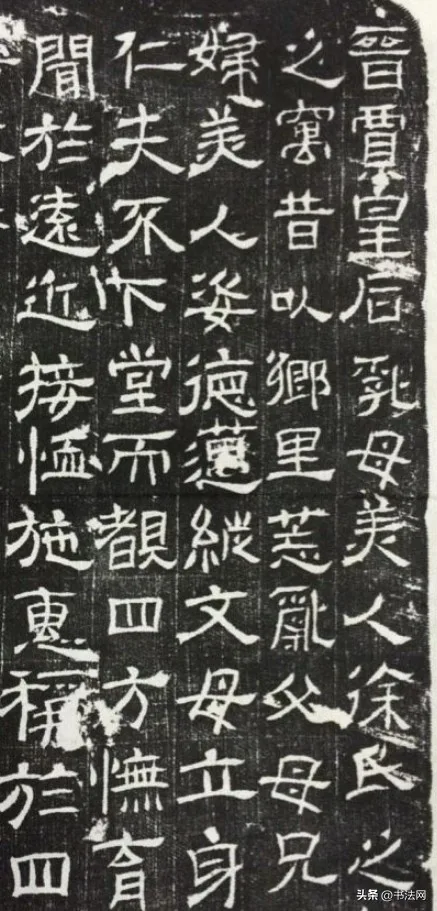 晉賈皇后乳母美人徐氏之
之寓昔以鄉里荒亂父母兄
婦美人姿德邁縱文母立身
仁夫不下堂而覩四方憮育
聞於遠近接恤施惠稱於四
头条 @书法网